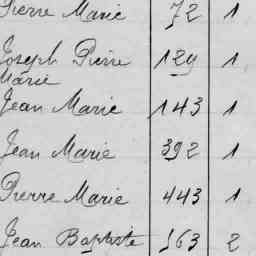 Pierre Marie 72 1
Joseph Pierre 129 1
Marie
Jean Marie 143 1
Jean Marie 392 1
Pierre Marie 443 1
Jean Baptiste 163 2